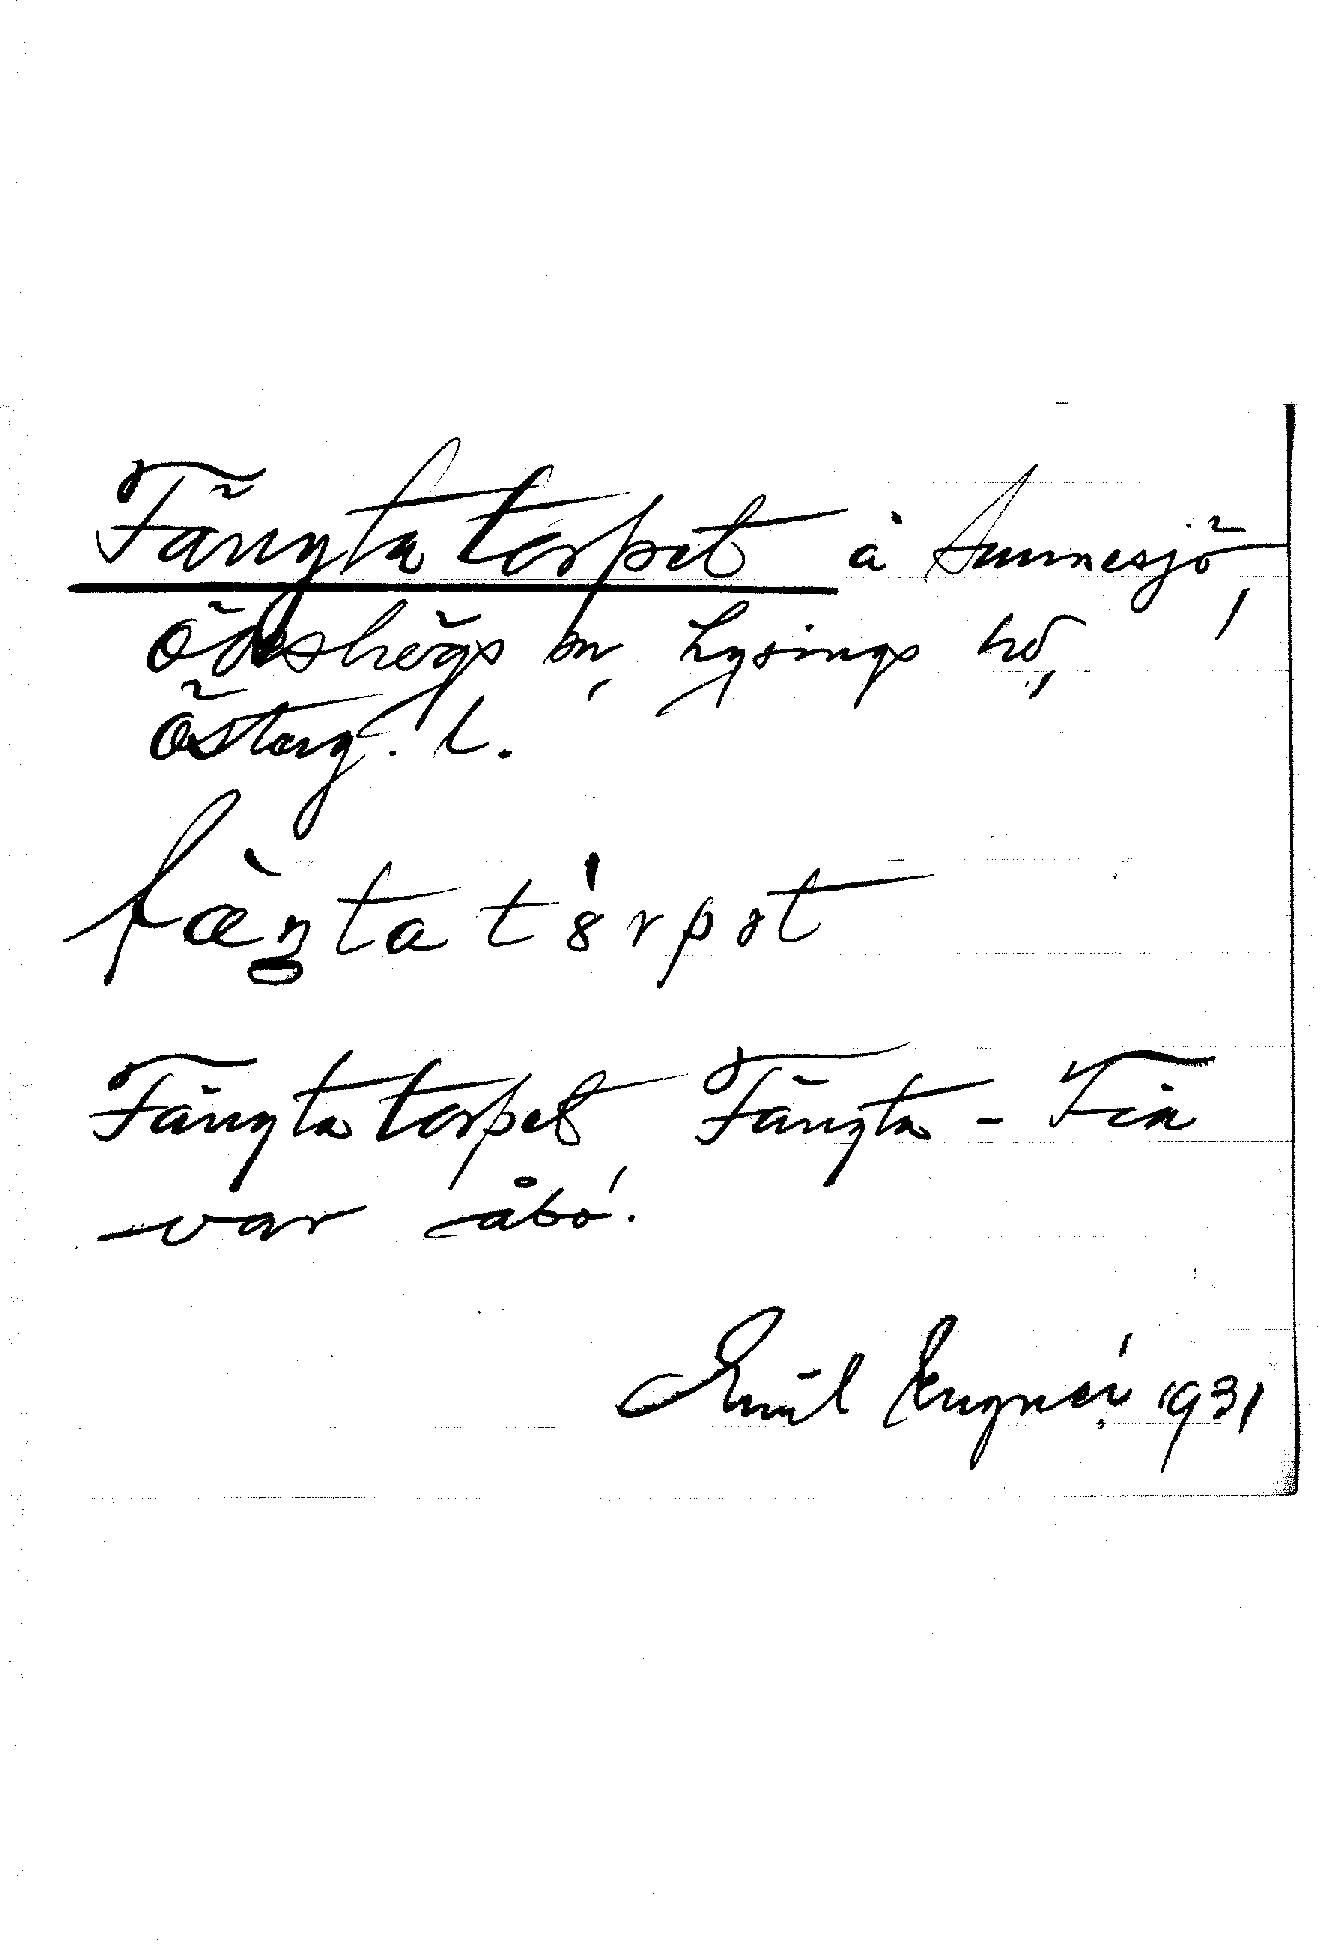 Fängtatorpet å Sunnesjö,
Ödeshögs sn, Lysings hd,
Österg. l.
fæŋtatòrpət
Fängtatorpet Fängta-Fia
var åbo.
Emil 1931